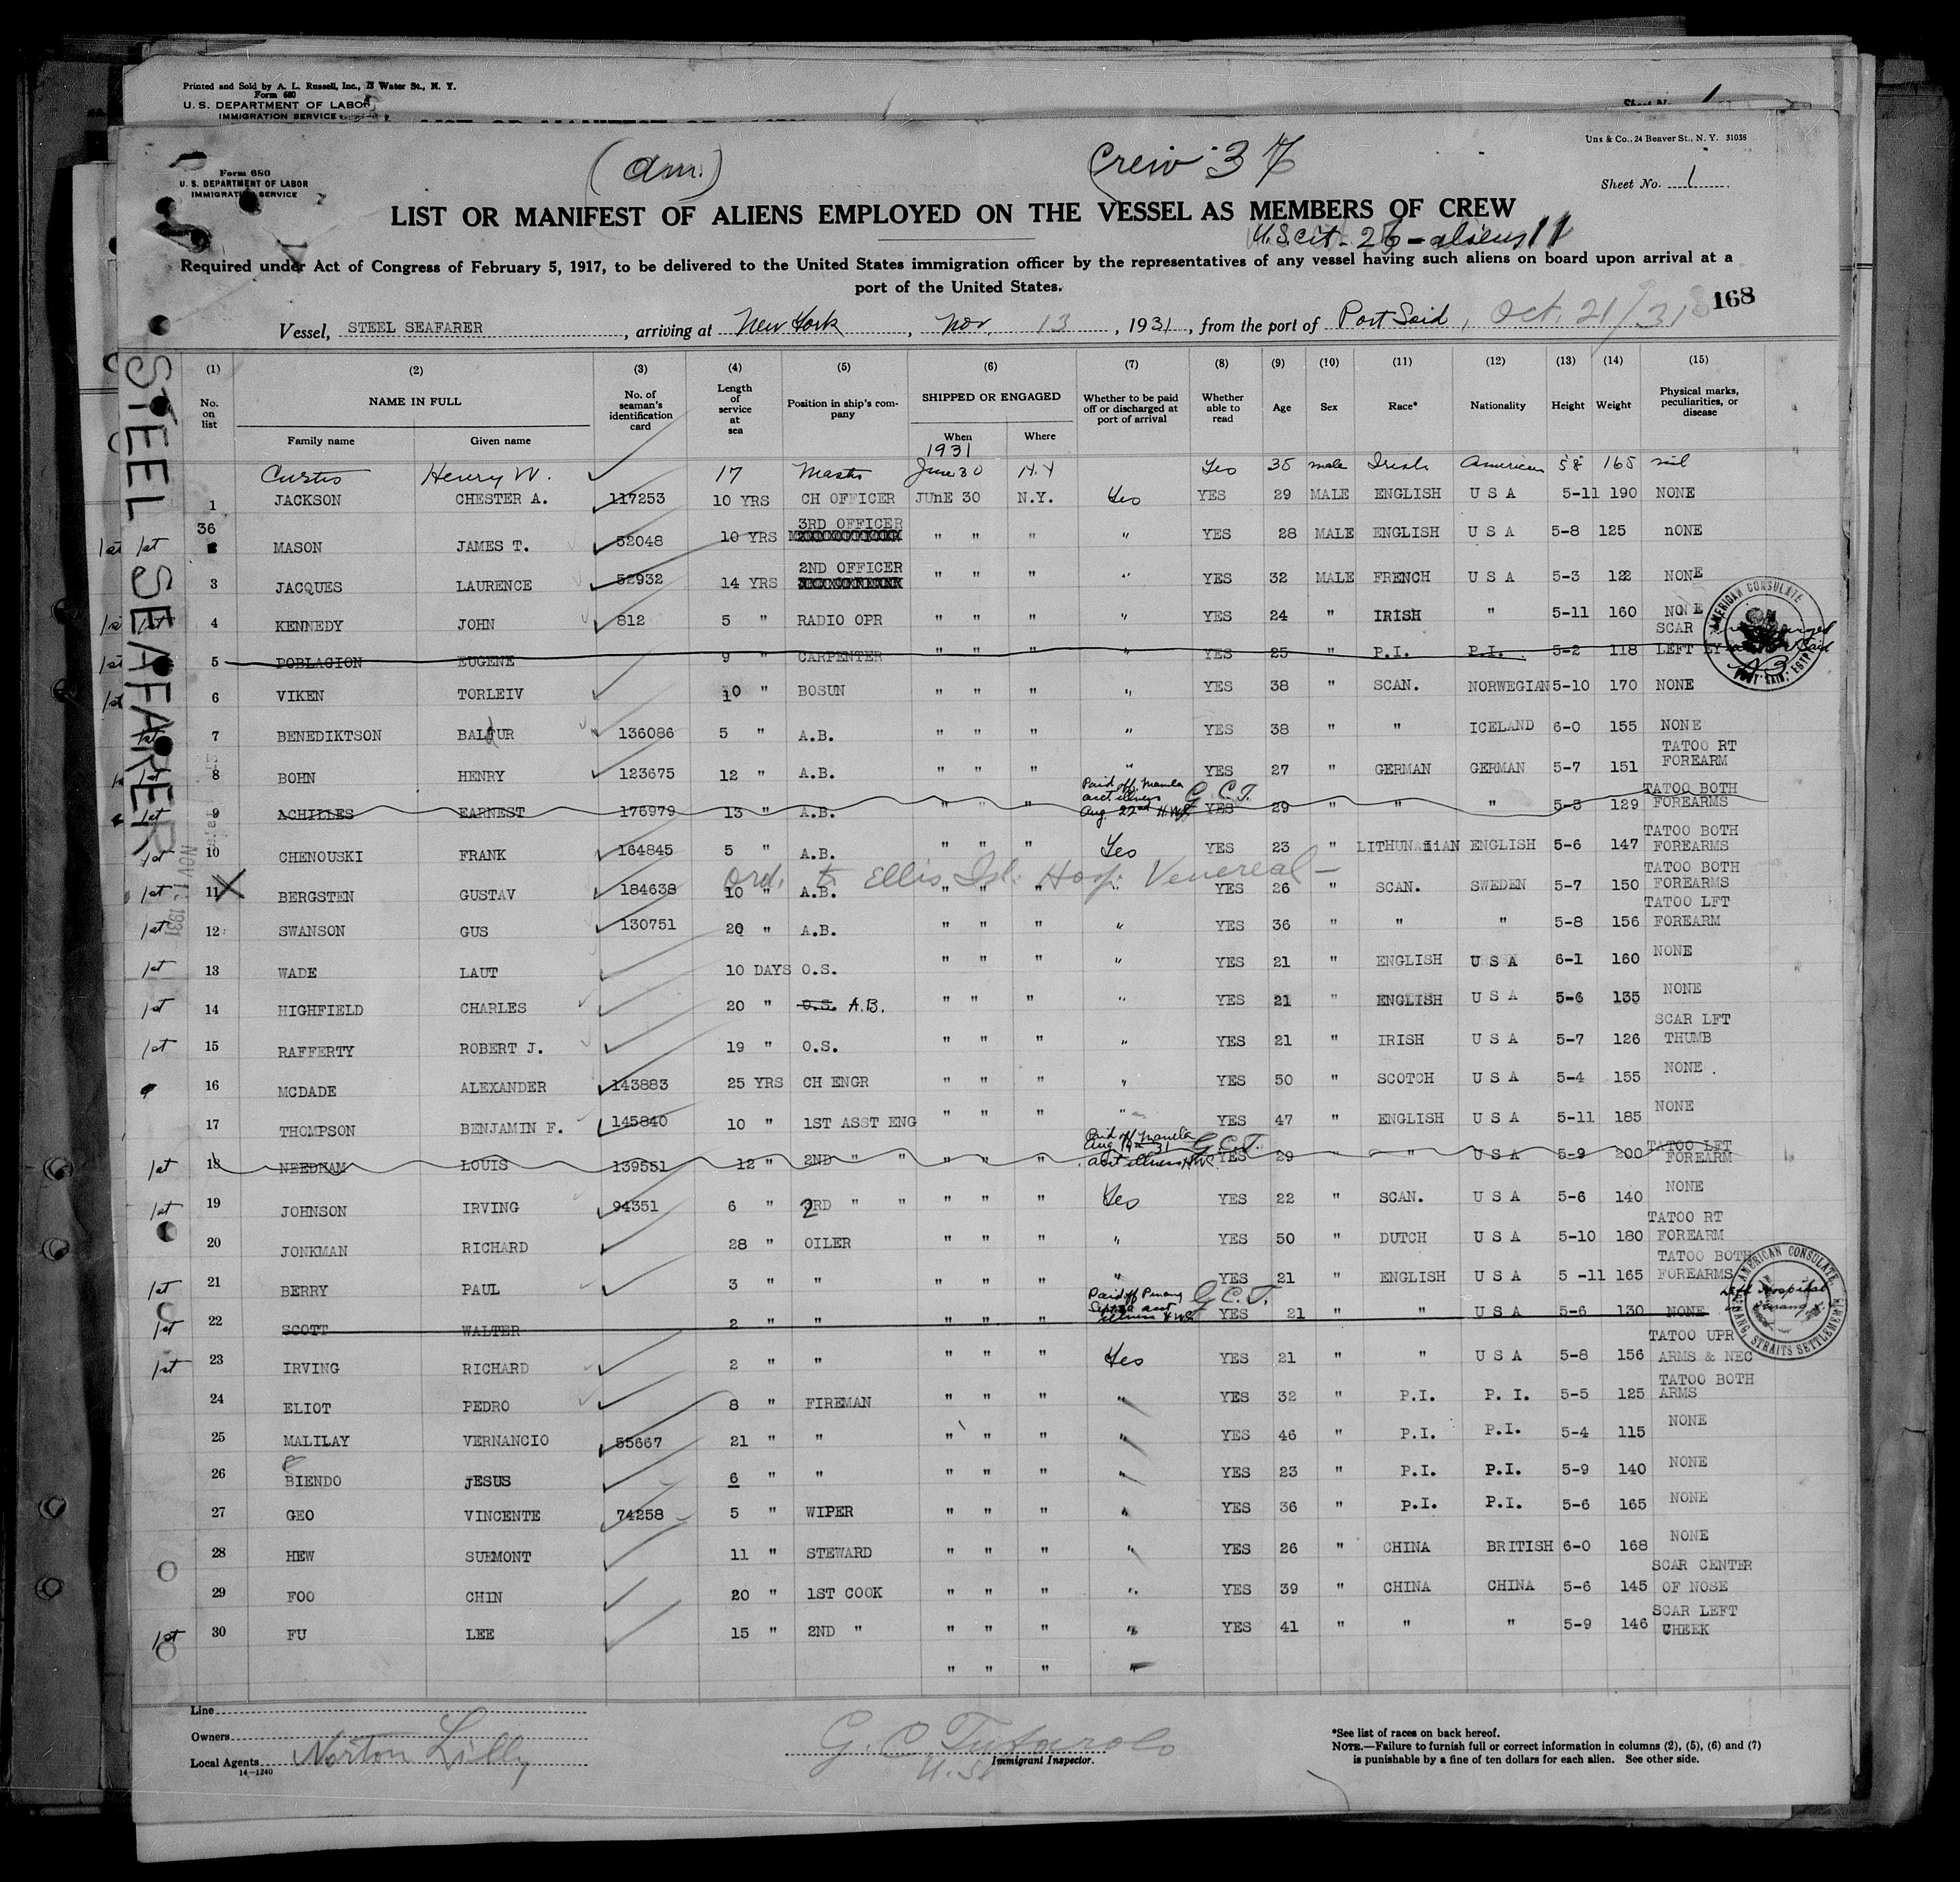 Printed and Sold by A. L. Russell, Inc., Water St., N. Y.
Form 680
U. S. DEPARTMENT OF LABOR
IMMIGRATION SERVICE
Sheet No. 1
Uns & Co., 24 Beaver St., N. Y. 31038
(Am.)
Crew 37
Form 680
U. S. DEPARTMENT OF LABOR
IMMIGRATION SERVICE
Sheet No. 1
LIST OR MANIFEST OF ALIENS EMPLOYED ON THE VESSEL AS MEMBERS OF CREW
U.S. cit - 26 - aliens 11
Required under Act of Congress of February 5, 1917, to be delivered to the United States immigration officer by the representatives of any vessel having such aliens on board upon arrival at a
port of the United States.
168
Vessel, STEEL SEAFARER, arriving at New York, Nov. 13, 1931, from the port of Port Said, Oct. 21/31
STEEL SEAFARER
(1) (2) (3) (4) (5) (6) (7) (8) (9) (10) (11) (12) (13) (14) (15)
No. on list NAME IN FULL No. of seaman's identification card Length of service at sea Position in ship's company SHIPPED OR ENGAGED Whether to be paid off or discharged at port of arrival Whether able to read Age Sex Race* Nationality Height Weight Physical marks, peculiarities, or disease
Family name Given name When Where
1931
Curtis Henry W. 17 Master June 30 N.Y Yes 35 male Irish American 5 8 165 nil
1 JACKSON CHESTER A. 117253 10 YRS CH OFFICER JUnE 30 N.Y. Yes YES 29 MALE ENGLISH U S A 5-11 190 NONE
36
1st 1st MASON JAMES T. 52048 10 YRS 3RD OFFICER " " " " YES 28 MALE ENGLISH U S A 5-8 125 nONE
3 JACQUES LAURENCE 52932 14 YRS 2ND OFFICER " " " " YES 32 MALE FRENCH U S A 5-3 122 NONE
1st 1st 4 KENNEDY JOHN 812 5 " RADIO OPR " " " " YES 24 " IRISH " 5-11 160 NONE
1st 5 POBLACION EUGENE 9 " CARPENTER " " " " YES 25 " P.I. P.I. 5-2 118 SCAR LEFT EY
AMERICAN CONSULATE
PORT SAID, EGYPT
1st 6 VIKEN TORLEIV 10 " BOSUN " " " " YES 38 " SCAN. NORWEGIAN 5-10 170 NONE
1st 7 BENEDIKTSON BALDUR 136086 5 " A.B. " " " " YES 38 " " ICELAND 6-0 155 NONE
1st 8 BOHN HENRY 123675 12 " A.B. " YES 27 " GERMAN GERMAN 5-7 151 TATOO RT FOREARM
1st 9 ACHILLES EARNEST 176979 13 " A.B. " " " Paid off, Manila acct illness Aug. 22nd H.W.C. G.C.T. YES 29 " " " 5-3 129 TATOO BOTH FOREARMS
1st 10 CHENOUSKI FRANK 164845 5 " A.B. " " " Yes YES 23 " LITHUNAiiAN ENGLISH 5-6 147 TATOO BOTH FOREARMS
Ord. to Ellis Isl. Hosp. Venereal -
1st 11 X BERGSTEN GUSTAV 184638 10 " A.B. " " " " YES 26 " SCAN. SWEDEN 5-7 150 TATOO BOTH FOREARMS
1st 12 SWANSON GUS 130751 20 " A.B. " " " " YES 36 " " " 5-8 156 TATOO LFT FOREARM
1st 13 WADE LAUT 10 DAYS O.S. " " " " YES 21 " ENGLISH U S A 6-1 160 NONE
1st 14 HIGHFIELD CHARLES 20 " O.S. A.B. " " " " YES 21 " ENGLISH U S A 5-6 135 NONE
1st 15 RAFFERTY ROBERT J. 19 " O.S. " " " " YES 21 " IRISH U S A 5-7 126 SCAR LFT THUMB
16 MCDADE ALEXANDER 143883 25 YRS CH ENGR " " " " YES 50 " SCOTCH U S A 5-4 155 NONE
17 THOMPSON BENJAMIN F. 145840 10 " 1ST ASST ENG " " " " YES 47 " ENGLISH U S A 5-11 185 NONE
1st 18 NEEDHAM LOUIS 139551 12 " 2ND " " " " " Paid off Manila Aug 19th 31 acct illness G.C.T. YES 29 " " U S A 5-9 200 TATOO LFT FOREARM
1st 19 JOHNSON IRVING 94351 6 " 2RD " " " " " Yes YES 22 " SCAN. U S A 5-6 140 NONE
20 JONKMAN RICHARD 28 " OILER " " " " YES 50 " DUTCH U S A 5-10 180 TATOO RT FOREARM
1st 21 BERRY PAUL 3 " " " " " " YES 21 " ENGLISH U S A 5 -11 165 TATOO BOTH FOREARMS
1st 22 SCOTT WALTER 2 " " " " " Paid off Penang acct illness G.C.T. YES 21 " " U S A 5-6 130 NONE
AMERICAN CONSULATE
PENANG, STRAITS SETTLEMENTS
Left Hospital Penang
1st 23 IRVING RICHARD 2 " " " " " Yes YES 21 " " U S A 5-8 156 TATOO UPR ARMS & NEC
24 ELIOT PEDRO 8 " FIREMAN " " " " YES 32 " P.I. P. I. 5-5 125 TATOO BOTH ARMS
25 MALILAY VERNANCIO 55667 21 " " " " " " YES 46 " P.I. P.I. 5-4 115 NONE
26 BIENDO JESUS 6 " " " " " " YES 23 " P.I. P.I. 5-9 140 NONE
27 GEO VINCENTE 74258 5 " WIPER " " " " YES 36 " P.I. P.I. 5-6 165 NONE
28 HEW SUEMONT 11 " STEWARD " " " " YES 26 " CHINA BRITISH 6-0 168 NONE
29 FOO CHIN 20 " 1ST COOK " " " " YES 39 " CHINA CHINA 5-6 145 SCAR CENTER OF NOSE
1st 30 FU LEE 15 " 2ND " " " " " YES 41 " " " 5-9 146 SCAR LEFT CHEEK
" " " "
Line
Owners
Local Agents Norton Lilly
14-1240
Immigrant Inspector.
*See list of races on back hereof.
NOTE.—Failure to furnish full or correct information in columns (2), (5), (6) and (7)
is punishable by a fine of ten dollars for each alien. See other side.